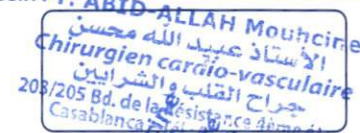 ABID-ALLAH Mouhcine
الأستاذ عبيد الله محسن
Chirurgien cardio-vasculaire
جراح القلب والشرايين
203/205 Bd. de la Résistance 4ème
Casablanca